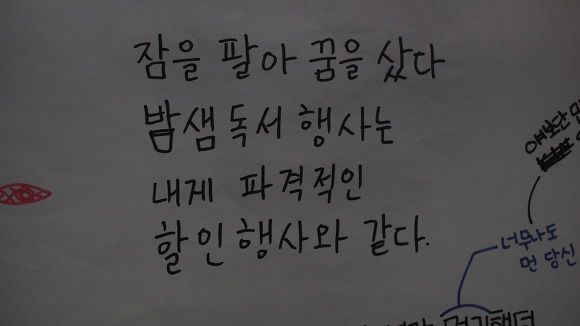 잠을 팔아 꿈을 샀다
밤샘독서 행사는
내게 파격적인
할인행사와 같다.
너무나도
먼 당신